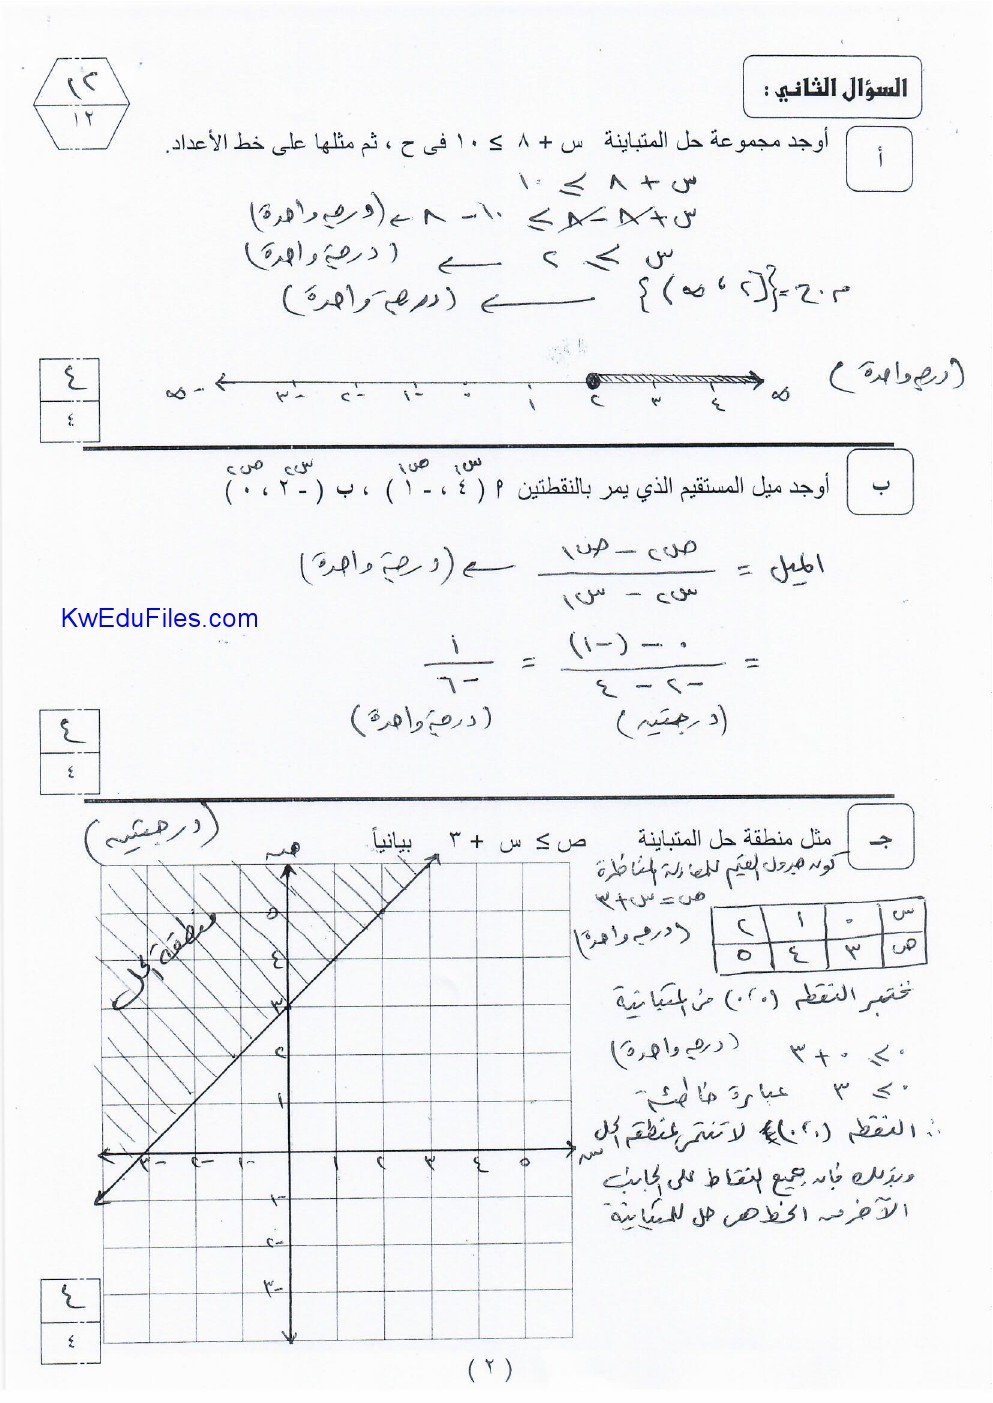 السؤال الثاني :
١٢
١٢
أ
أوجد مجموعة حل المتباينة س + ٨ ≥ ١٠ فى ح ، ثم مثلها على خط الأعداد.
س + ٨ ≤ ١٠
س + ٨ - ٨ ≤ ١٠ - ٨ ← (درجة واحدة)
س ≤ ٢ ← (درجة واحدة)
م.ح = {[٢ ، ∞)} ← (درجة واحدة)
-∞ -٣ -٢ -١ ٠ ١ ٢ ٣ ٤ ∞ (درجة واحدة)
٤
٤
ب
س١ ص١ س٢ ص٢
أوجد ميل المستقيم الذي يمر بالنقطتين م ( ٤ ، -١ ) ، ب ( -٢ ، ٠ )
الميل = (ص٢ - ص١) / (س٢ - س١) ← (درجة واحدة)
KwEduFiles.com
= (٠ - (-١)) / (-٢ - ٤) = ١ / -٦
(درجتين) (درجة واحدة)
٤
٤
جـ
مثل منطقة حل المتباينة ص ≥ س + ٣ بيانياً (درجتين)
نكون جدول القيم للمعادلة المناظرة
ص = س + ٣
س ٠ ١ ٢
ص ٣ ٤ ٥
(درجة واحدة)
نختبر النقطة (٠،٠) في المتباينة
٠ ≤ ٠ + ٣ (درجة واحدة)
٠ ≤ ٣ عبارة خاطئة
∴ النقطة (٠،٠) لا تنتمي لمنطقة الحل
وبذلك فإن جميع النقاط على الجانب
الآخر من الخط هي حل للمتباينة
منطقة الحل
ص
٥
٤
٣
٢
١
-٣ -٢ -١ ١ ٢ ٣ ٤ ٥ س
-١
-٢
-٣
٤
٤
( ٢ )